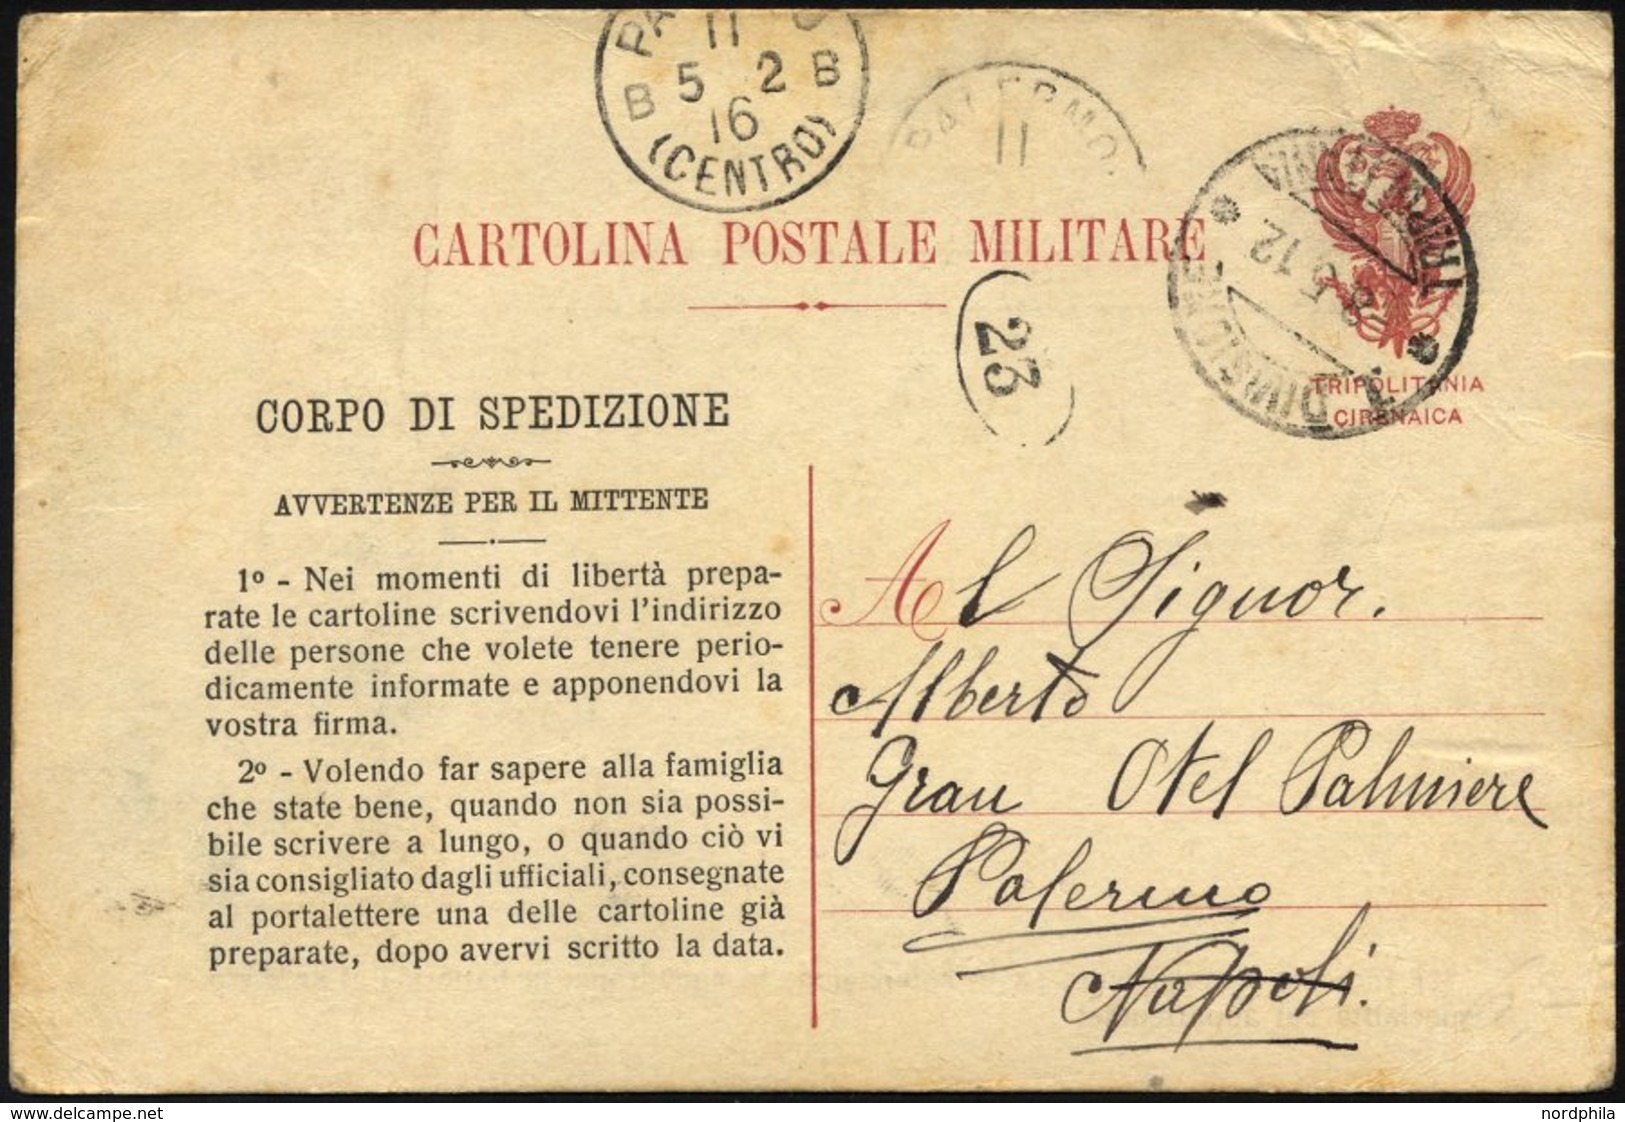 11
5 2
B B
16
(CENTRO)
PALERMO
11
CARTOLINA POSTALE MILITARE
TRIPOLITANIA
8 5 12
DIVISIONE
23
TRIPOLITANIA
CIRENAICA
CORPO DI SPEDIZIONE
AVVERTENZE PER IL MITTENTE
1º - Nei momenti di libertà prepa-
rate le cartoline scrivendovi l'indirizzo
delle persone che volete tenere perio-
dicamente informate e apponendovi la
vostra firma.
2º - Volendo far sapere alla famiglia
che state bene, quando non sia possi-
bile scrivere a lungo, o quando ciò vi
sia consigliato dagli ufficiali, consegnate
al portalettere una delle cartoline già
preparate, dopo avervi scritto la data.
Al Signor.
Alberto
Gran Otel Palmiere
Palermo
Napoli.
nordphila.com